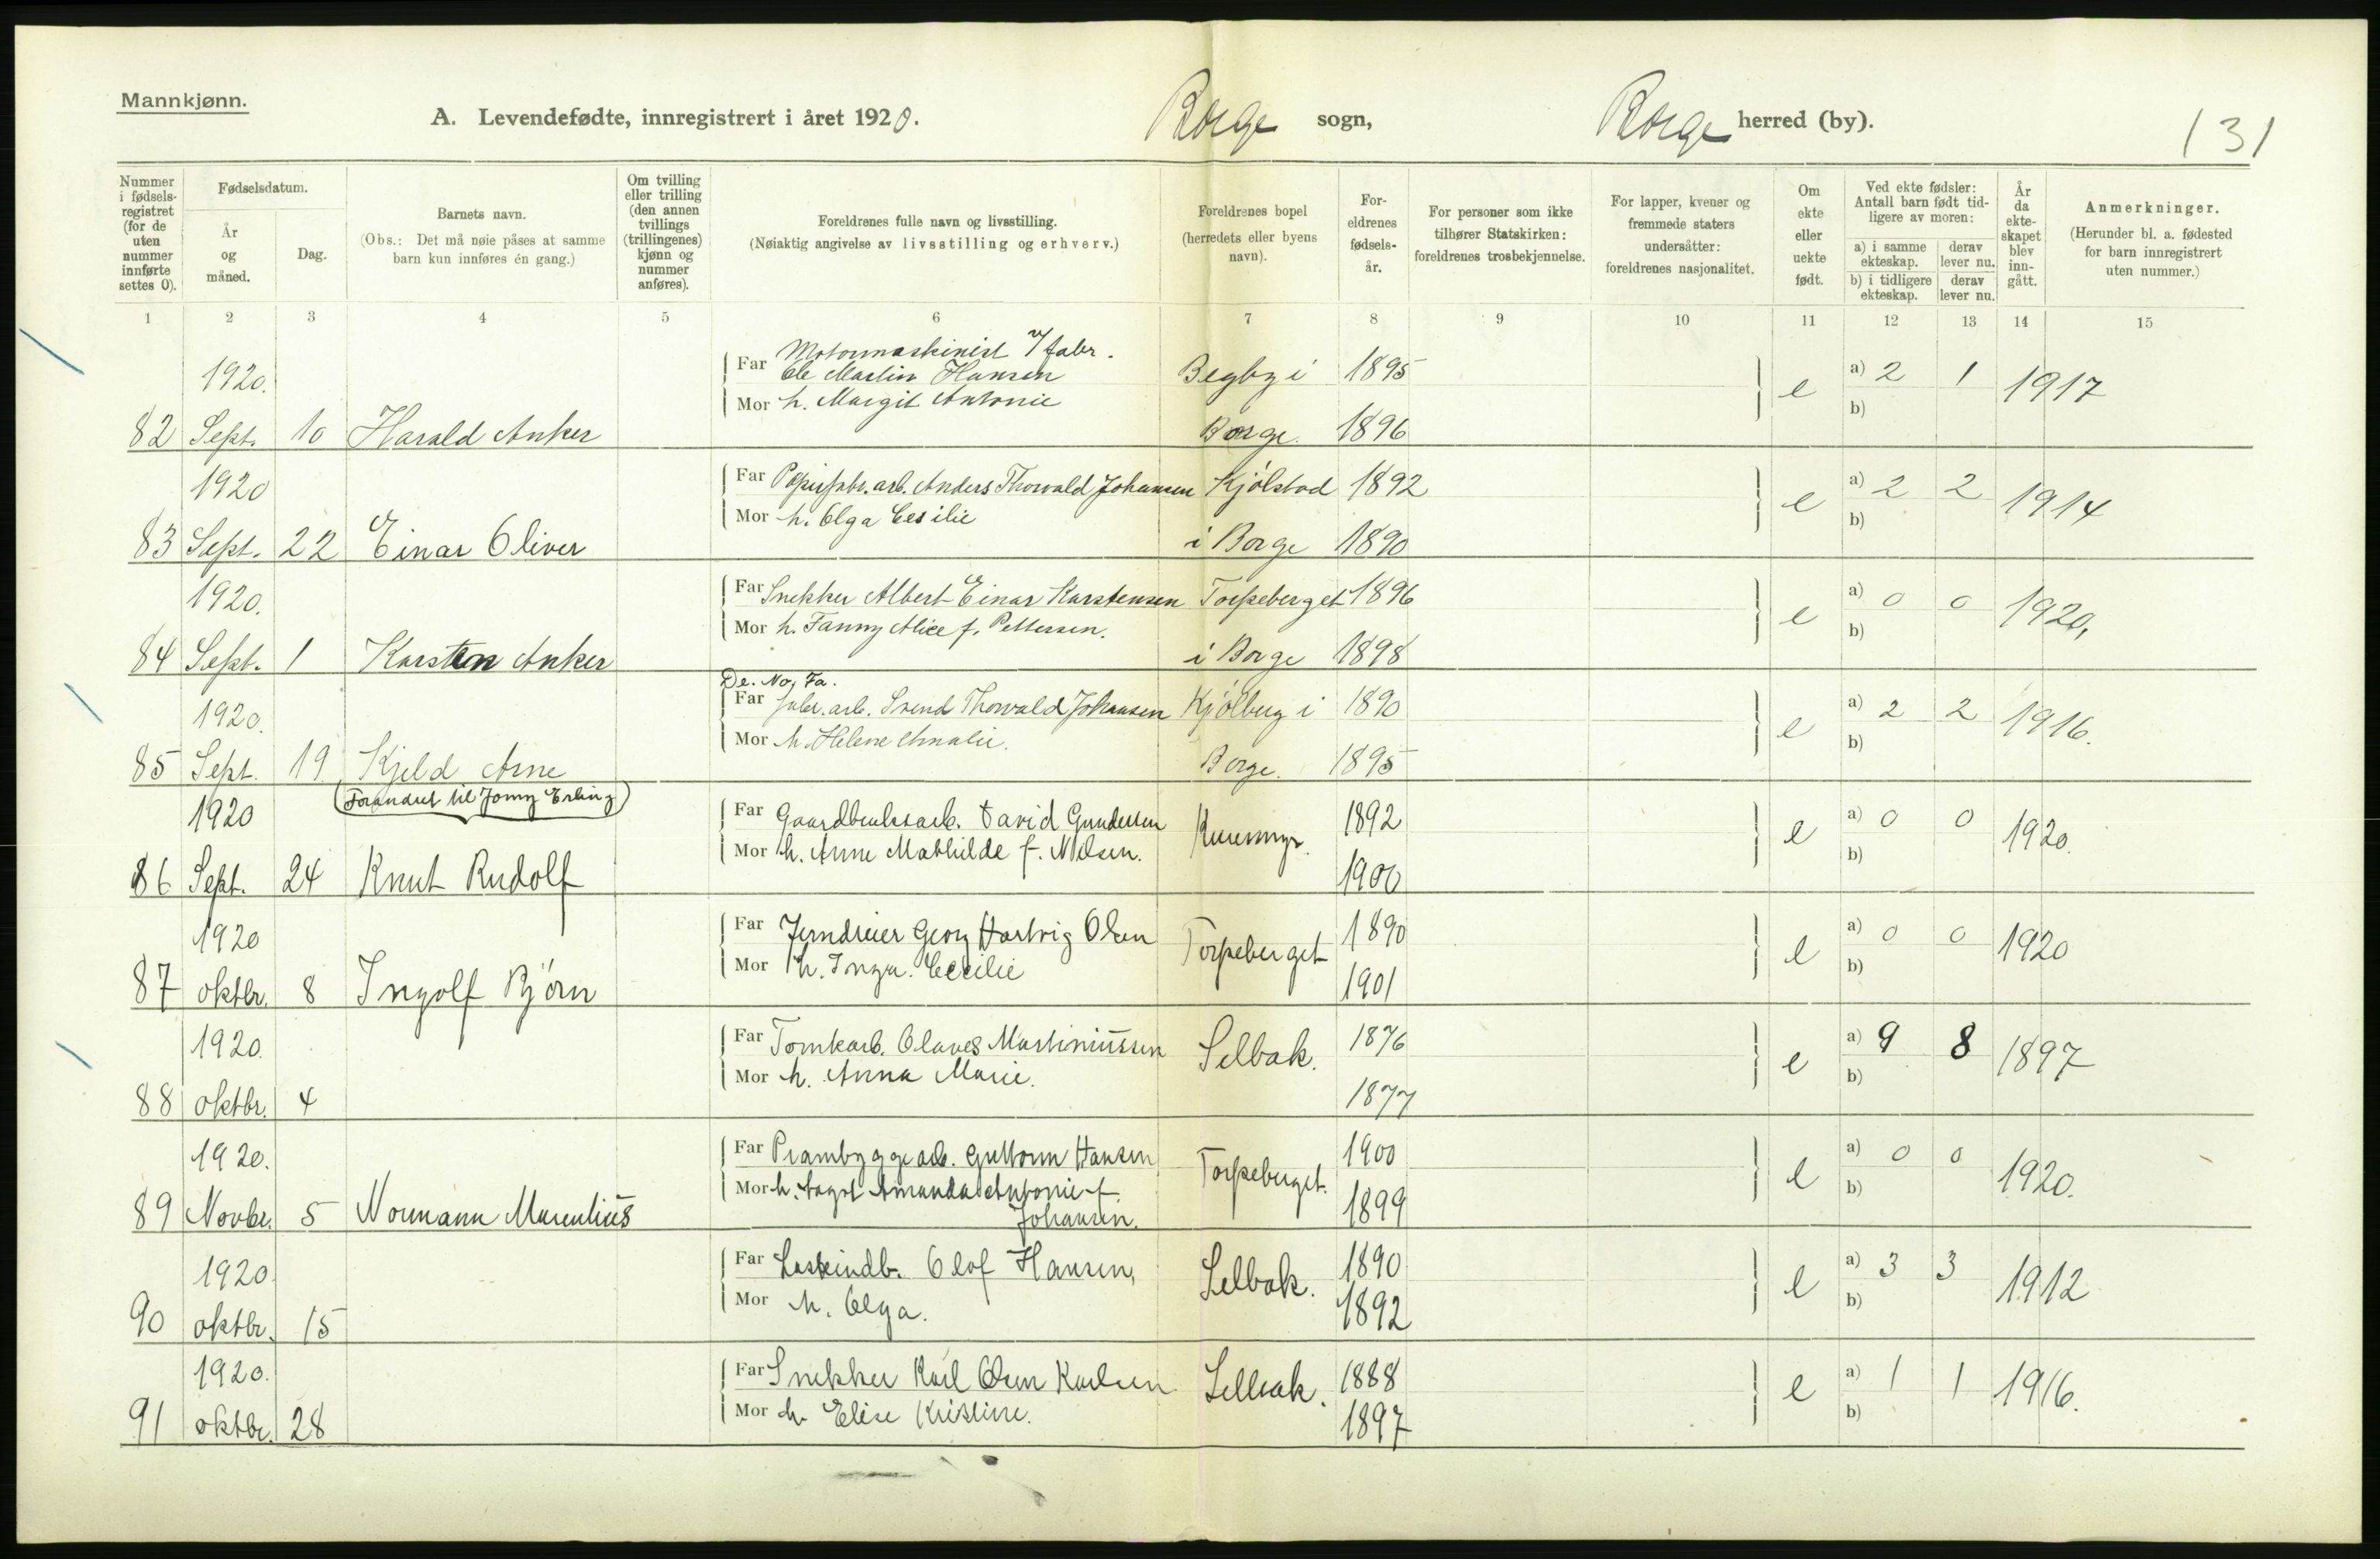 Mannkjønn.
A. Levendefødte, innregistrert i året 1920. Borge sogn, Borge herred (by). 131
Nummer i fødselsregistret (for de uten nummer innførte settes 0).
Fødselsdatum.
År og måned.
Dag.
Barnets navn.
(Obs.: Det må nøie påses at samme barn kun innføres én gang.)
Om tvilling eller trilling (den annen tvillings (trillingenes) kjønn og nummer anføres).
Foreldrenes fulle navn og livsstilling.
(Nøiaktig angivelse av livsstilling og erhverv.)
Foreldrenes bopel (herredets eller byens navn).
Foreldrenes fødselsår.
For personer som ikke tilhører Statskirken: foreldrenes trosbekjennelse.
For lapper, kvener og fremmede staters undersåtter: foreldrenes nasjonalitet.
Om ekte eller uekte født.
Ved ekte fødsler: Antall barn født tidligere av moren:
a) i samme ekteskap. derav lever nu.
b) i tidligere ekteskap. derav lever nu.
År da ekteskapet blev inngått.
Anmerkninger.
(Herunder bl. a. fødested for barn innregistrert uten nummer.)
1 2 3 4 5 6 7 8 9 10 11 12 13 14 15
Motormaskinist v/fabr.
1920. Far Ole Martin Hansen Begby i 1895 e a) 2 1 1917
Mor h. Margit Antonie b)
82 Sept. 10 Harald Anker Borge. 1896
1920 Far Papirfabr. arb. Anders Thorvald Johansen Kjölstad 1892 e a) 2 2 1914
Mor h. Olga Cesilie b)
83 Sept. 22 Einar Oliver i Borge 1890
1920. Far Snekker Albert Einar Karstensen Torpeberget 1896 e a) 0 0 1920.
Mor h. Fanny Alice f. Pettersen. b)
84 Sept. 1 Karsten Anker i Borge 1898
De. No. Fa.
1920. Far fabr. arb. Svend Thorvald Johansen Kjölberg i 1890 e a) 2 2 1916.
Mor h. Helene Amalie. b)
85 Sept. 19 Kjeld Arne Borge. 1895
(Forandret til Jonny Erling)
1920 Far Gaardbruksarb. David Gundersen 1892 e a) 0 0 1920.
Mor h. Anne Mathilde f. Nilsen. b)
86 Sept. 24 Knut Rudolf 1900
1920 Far Jerndreier Georg Hartvig Olsen Torpeberget 1890 e a) 0 0 1920
Mor h. Inga Cecilie b)
87 oktbr. 8 Ingolf Björn 1901
1920. Far Tomtearb. Olaves Martiniussen Selbak. 1876 e a) 9 8 1897
Mor h. Anna Marie. b)
88 oktbr. 4 1877
1920. Far Prambyggearb. Guttorm Hansen Torpeberget. 1900 e a) 0 0 1920.
Mor h. Aagot Amanda Antonie f. b)
89 Novbr. 5 Normann Marentius Johansen. 1899
1920 Far Olof Hansen, Selbak. 1890 e a) 3 3 1912
Mor h. Olga. b)
90 oktbr. 15 1892
1920. Far Snekker Karl Olsen Karlsen Selbak. 1888 e a) 1 1 1916.
Mor h. Elise Kristine. b)
91 oktbr. 28 1897